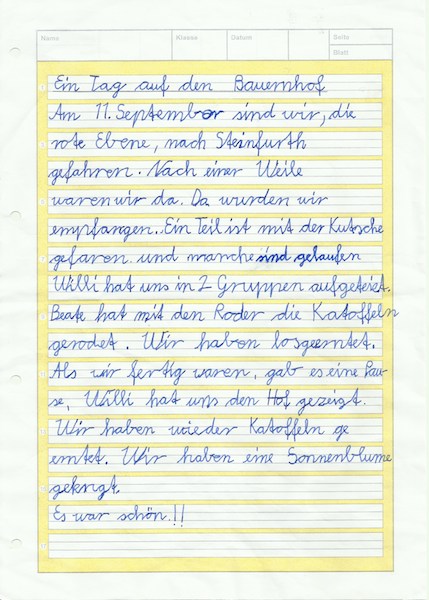 Name Klasse Datum Seite
Blatt
Ein Tag auf den Bauernhof
Am 11. September sind wir, die
rote Ebene, nach Steinfurth
gefahren. Nach einer Weile
waren wir da. Da wurden wir
empfangen. Ein Teil ist mit der Kutsche
gefaren und manche sind gelaufen
Willi hat uns in 2 Gruppen aufgeteist.
Beate hat mit den Roder die Katoffeln
gerodet. Wir haben losgeerntet.
Als wir fertig waren, gab es eine Pau-
se, Willi hat uns den Hof gezeigt.
Wir haben wieder Katoffeln ge
erntet. Wir haben eine Sonnenblume
gekrigt.
Es war schön.!!